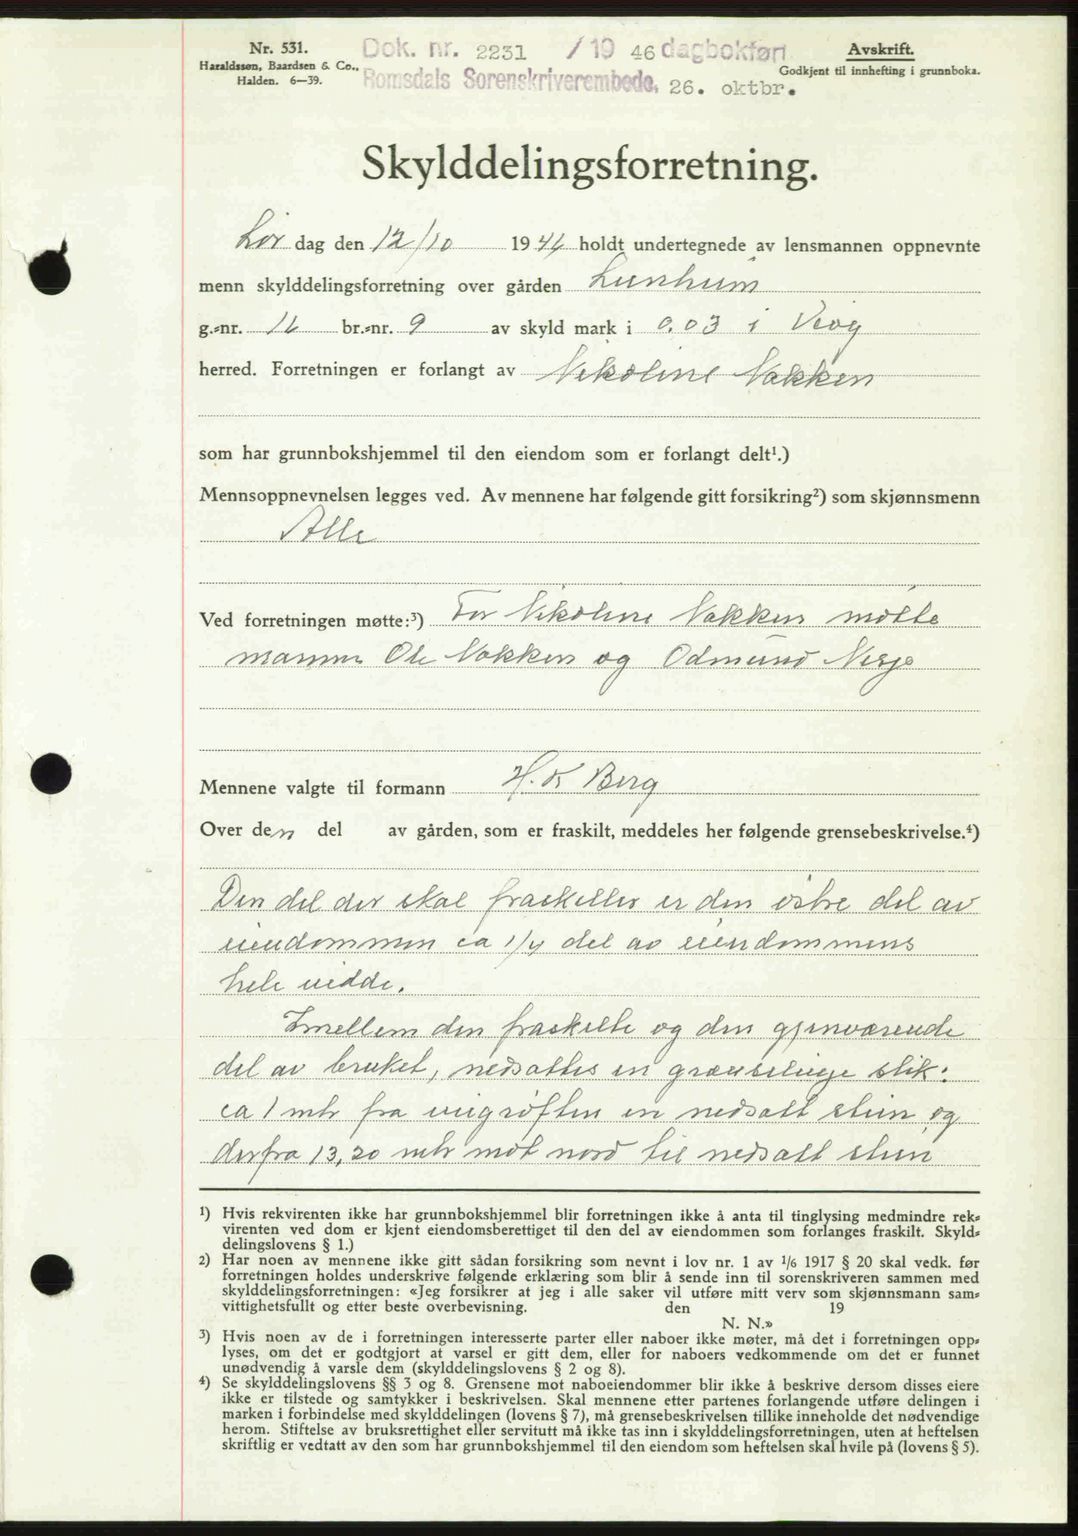 Nr. 531.
Haraldssøn, Baardsen & Co.,
Halden. 6—39.
Dok. nr. 2231 /19 46 dagbokført
Romsdals Sorenskriverembede, 26. oktbr.
Avskrift.
Godkjent til innhefting i grunnboka.
Skylddelingsforretning.
Lør dag den 12/10 1946 holdt undertegnede av lensmannen oppnevnte
menn skylddelingsforretning over gården Lunheim
g.=nr. 16 br.=nr. 9 av skyld mark i 0.03 i Veøy
herred. Forretningen er forlangt av Nikoline Nakken
som har grunnbokshjemmel til den eiendom som er forlangt delt¹.)
Mennsoppnevnelsen legges ved. Av mennene har følgende gitt forsikring²) som skjønnsmenn
Alle
Ved forretningen møtte:³) For Nikoline Nakken møtte
mannen Ole Nakken og Odmund Nesje
Mennene valgte til formann H. K Berg
Over den del av gården, som er fraskilt, meddeles her følgende grensebeskrivelse.⁴)
Den del der skal fraskilles er den østre del av
eiendommen ca 1/4 del av eiendommens
hele vidde.
Imellem den fraskilte og den gjenværende
del av bruket, nedsattes en grænselinje slik:
ca 1 mtr fra veigrøften en nedsatt stein, og
derfra 13,20 mtr mot nord til nedsatt stein
¹) Hvis rekvirenten ikke har grunnbokshjemmel blir forretningen ikke å anta til tinglysing medmindre rek=
virenten ved dom er kjent eiendomsberettiget til den del av eiendommen som forlanges fraskilt. Skyld=
delingslovens § 1.)
²) Har noen av mennene ikke gitt sådan forsikring som nevnt i lov nr. 1 av 1/6 1917 § 20 skal vedk. før
forretningen holdes underskrive følgende erklæring som blir å sende inn til sorenskriveren sammen med
skylddelingsforretningen: «Jeg forsikrer at jeg i alle saker vil utføre mitt verv som skjønnsmann sam=
vittighetsfullt og etter beste overbevisning. den 19
N. N.»
³) Hvis noen av de i forretningen interesserte parter eller naboer ikke møter, må det i forretningen opp=
lyses, om det er godtgjort at varsel er gitt dem, eller for naboers vedkommende om det er funnet
unødvendig å varsle dem (skylddelingslovens § 2 og 8).
⁴) Se skylddelingslovens §§ 3 og 8. Grensene mot naboeiendommer blir ikke å beskrive dersom disses eiere
ikke er tilstede og samtykker i beskrivelsen. Skal mennene etter partenes forlangende utføre delingen i
marken i forbindelse med skylddelingen (lovens § 7), må grensebeskrivelsen tillike inneholde det nødvendige
herom. Stiftelse av bruksrettighet eller servitutt må ikke tas inn i skylddelingsforretningen, uten at heftelsen
skriftlig er vedtatt av den som har grunnbokshjemmel til den eiendom som heftelsen skal hvile på (lovens § 5).